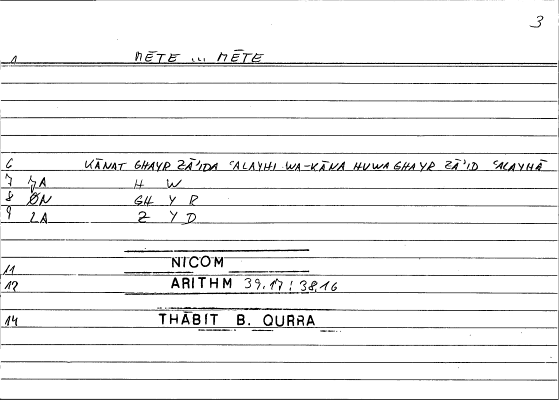 3
1 MĒTE ... MĒTE
6 KĀNAT GHAYR ZĀ'IDA ʿALAYHI WA-KĀNA HUWA GHAYR ZĀ'ID ʿALAYHĀ
7 H W
8 ØN GH Y R
9 ZA Z Y D
11 NICOM
12 ARITHM 39.17 : 38.16
14 THĀBIT B. QURRA